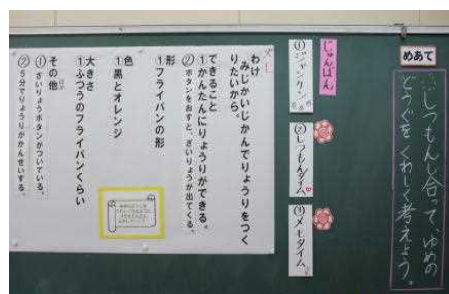 めあて
しつもんし合って、ゆめの
どうぐをくわしく考えよう。
じゅんばん
①ジャンケン
②しつもんタイム
③メモタイム
わけ
みじかいじかんでりょうりをつく
りたいから。
できること
①かんたんにりょうりができる。
②ボタンをおすと、ざいりょうが出てくる。
形
①フライパンの形
色
①黒とオレンジ
大きさ
①ふつうのフライパンくらい
その他
①ざいりょうボタンがついている。
②5分でりょうりがかんせいする。